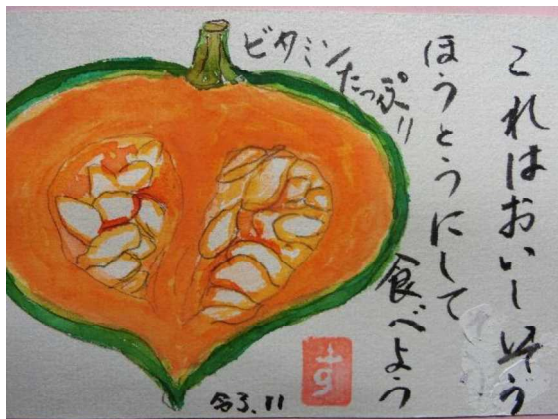 これはおいしそう
ほうとうにして
食べよう
ビタミン
たっぷり
令3.11
す